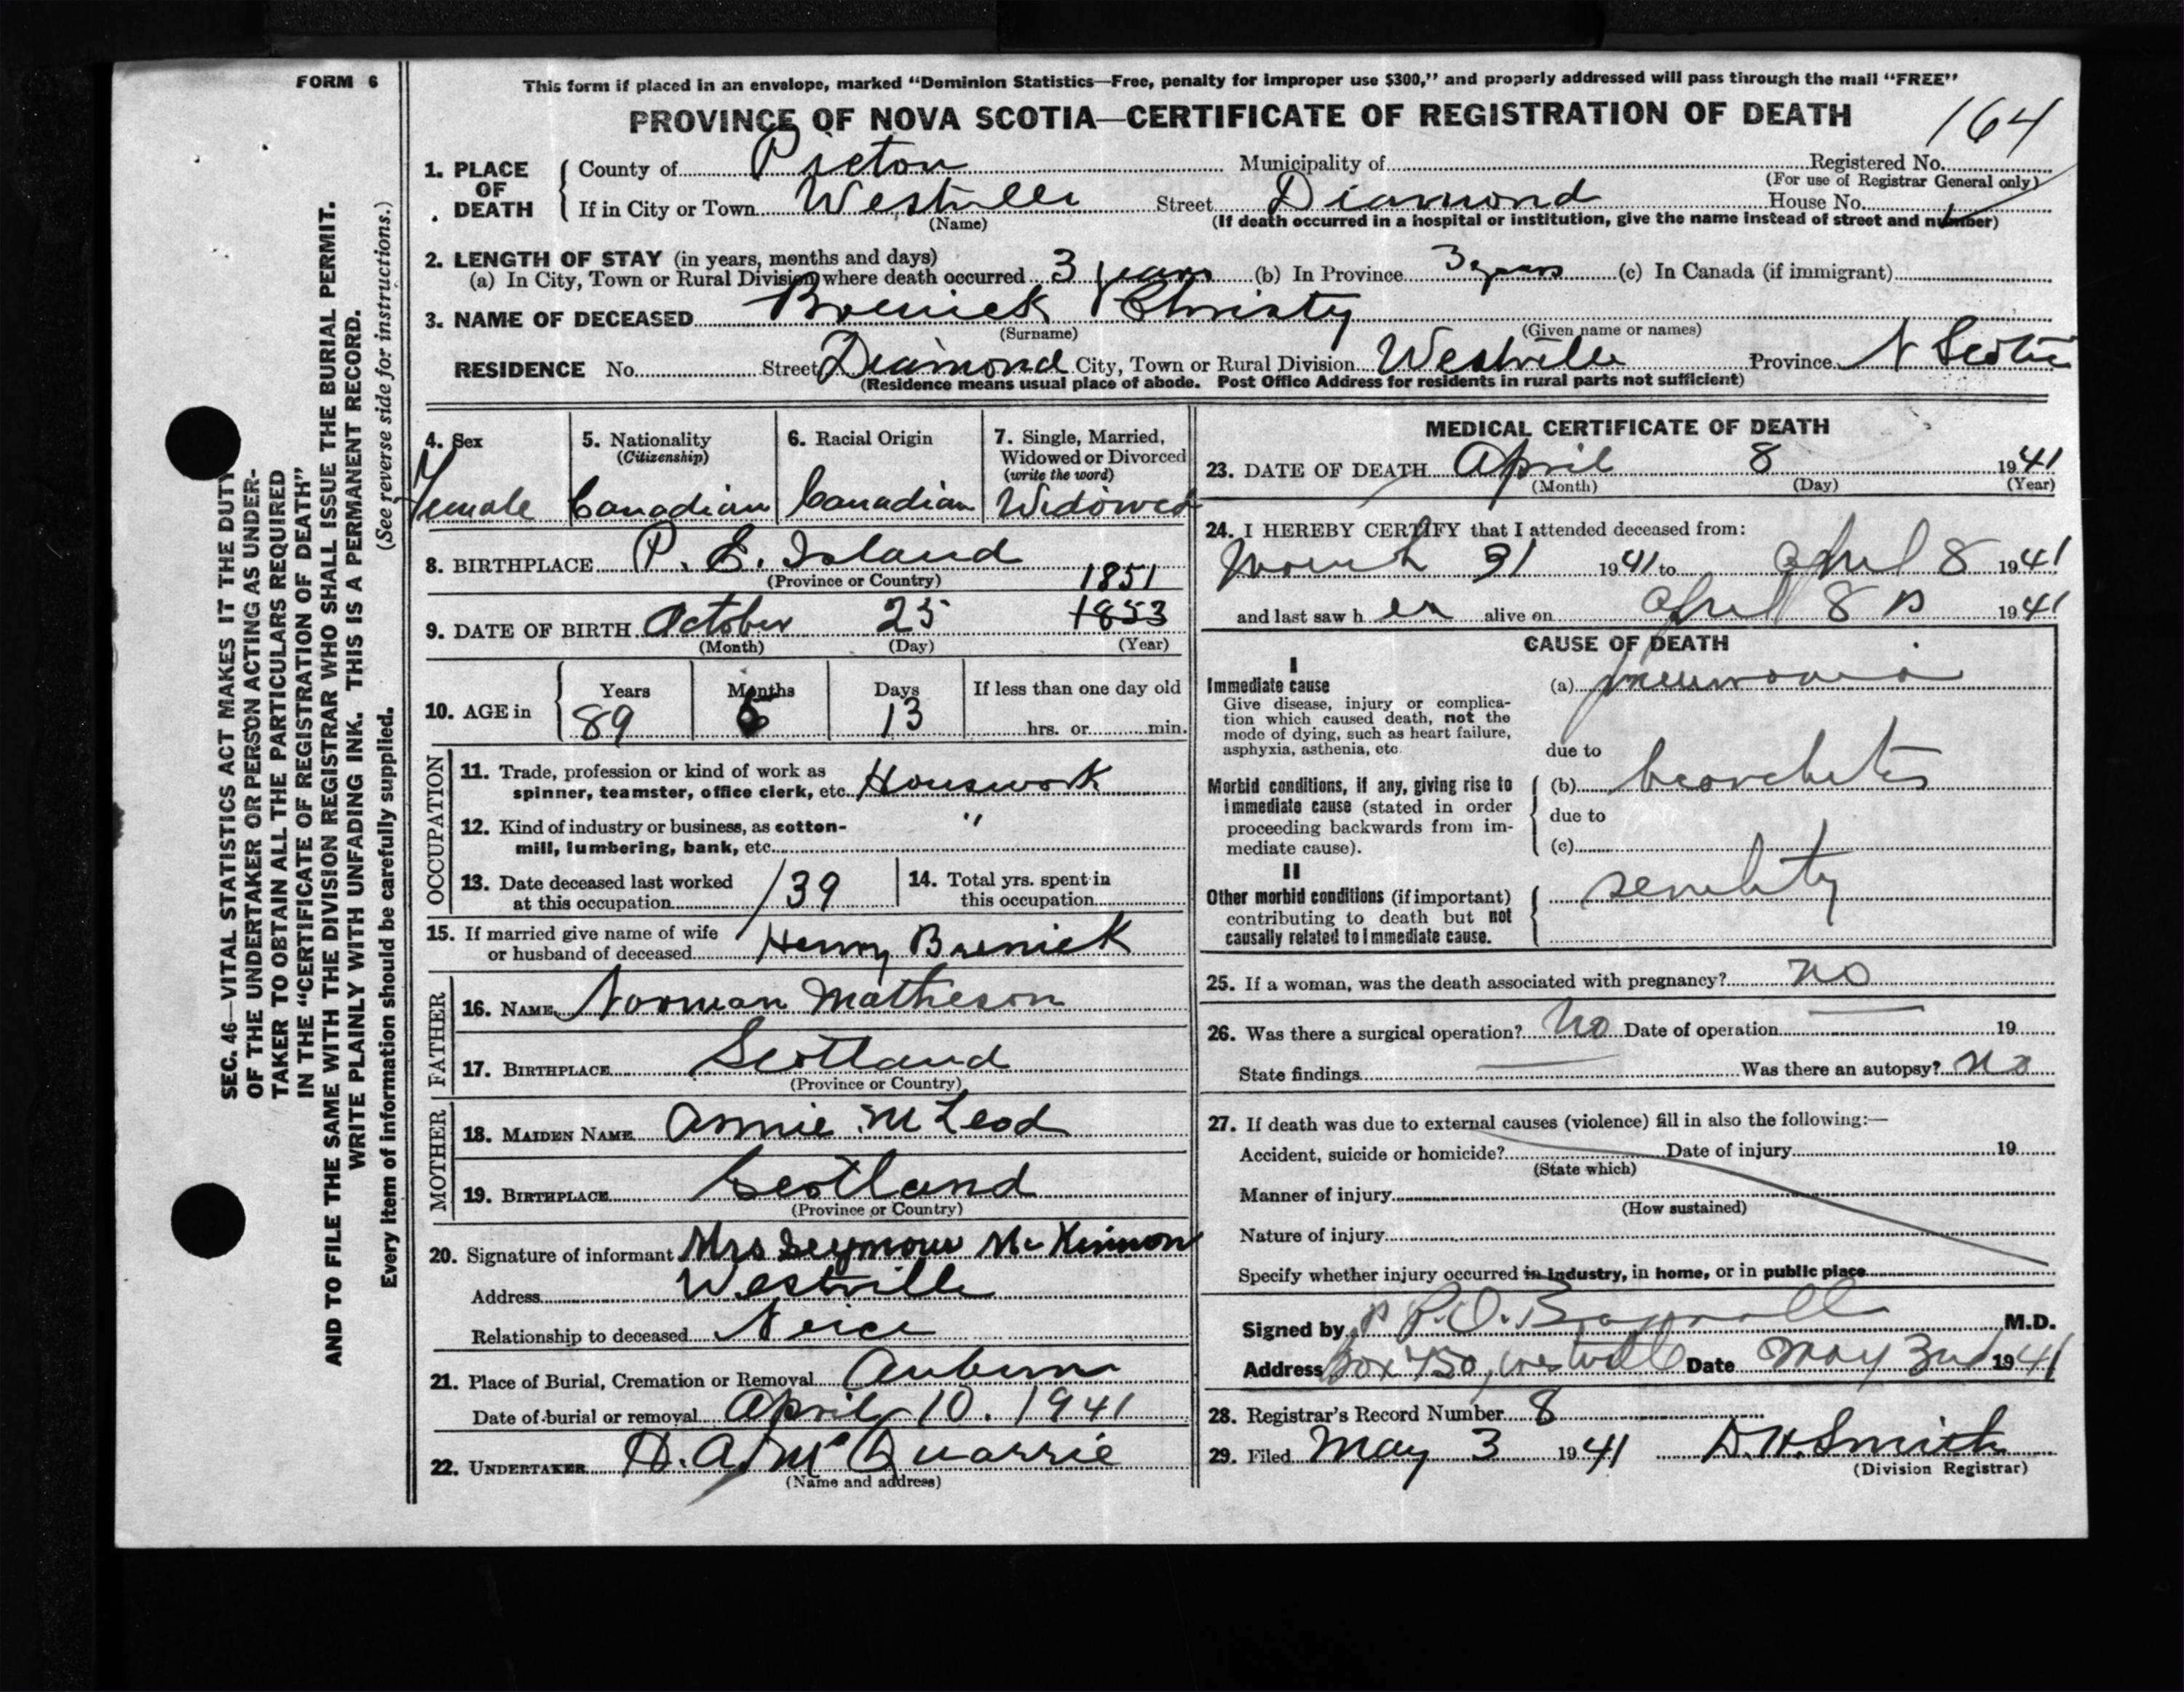 FORM 6
This form if placed in an envelope, marked "Dominion Statistics—Free, penalty for improper use $300," and properly addressed will pass through the mail "FREE"
PROVINCE OF NOVA SCOTIA—CERTIFICATE OF REGISTRATION OF DEATH
164
1. PLACE OF DEATH
County of Pictou Municipality of Registered No.
(For use of Registrar General only)
If in City or Town Westville Street Diamond House No.
(Name) (If death occurred in a hospital or institution, give the name instead of street and number)
2. LENGTH OF STAY (in years, months and days)
(a) In City, Town or Rural Division where death occurred 3 years (b) In Province 3 years (c) In Canada (if immigrant)
3. NAME OF DECEASED Christy
(Surname) (Given name or names)
RESIDENCE No. Street Diamond City, Town or Rural Division Westville Province N Scotia
(Residence means usual place of abode. Post Office Address for residents in rural parts not sufficient)
4. Sex
Female
5. Nationality
(Citizenship)
Canadian
6. Racial Origin
Canadian
7. Single, Married,
Widowed or Divorced
(write the word)
Widowed
8. BIRTHPLACE P. E. Island
(Province or Country)
1851
9. DATE OF BIRTH October 25 1853
(Month) (Day) (Year)
10. AGE in
Years Months Days If less than one day old
89 13 hrs. or min.
OCCUPATION
11. Trade, profession or kind of work as
spinner, teamster, office clerk, etc. Housework
12. Kind of industry or business, as cotton-
mill, lumbering, bank, etc. "
13. Date deceased last worked
at this occupation /39
14. Total yrs. spent in
this occupation
15. If married give name of wife
or husband of deceased Henry
FATHER
16. NAME Norman Matheson
17. BIRTHPLACE Scotland
(Province or Country)
MOTHER
18. MAIDEN NAME Annie McLeod
19. BIRTHPLACE Scotland
(Province or Country)
20. Signature of informant Mrs Seymour McKinnon
Address Westville
Relationship to deceased Neice
21. Place of Burial, Cremation or Removal Auburn
Date of burial or removal April 10. 1941
22. UNDERTAKER H. A. McQuarrie
(Name and address)
MEDICAL CERTIFICATE OF DEATH
23. DATE OF DEATH April 8 1941
(Month) (Day) (Year)
24. I HEREBY CERTIFY that I attended deceased from:
March 31 1941 to April 8 1941
and last saw her alive on April 8 1941
CAUSE OF DEATH
I
Immediate cause
Give disease, injury or complica-
tion which caused death, not the
mode of dying, such as heart failure,
asphyxia, asthenia, etc.
(a) pneumonia
due to
Morbid conditions, if any, giving rise to
immediate cause (stated in order
proceeding backwards from im-
mediate cause).
(b) bronchitis
due to
(c)
II
Other morbid conditions (if important)
contributing to death but not
causally related to immediate cause.
senility
25. If a woman, was the death associated with pregnancy? no
26. Was there a surgical operation? No Date of operation — 19
State findings — Was there an autopsy? no
27. If death was due to external causes (violence) fill in also the following:—
Accident, suicide or homicide? Date of injury 19
(State which)
Manner of injury
(How sustained)
Nature of injury
Specify whether injury occurred in industry, in home, or in public place
Signed by M.D.
Address Box 450, Westville Date May 3rd 1941
28. Registrar's Record Number 8
29. Filed May 3 1941 D.H. Smith
(Division Registrar)
SEC. 46—VITAL STATISTICS ACT MAKES IT THE DUTY
OF THE UNDERTAKER OR PERSON ACTING AS UNDER-
TAKER TO OBTAIN ALL THE PARTICULARS REQUIRED
IN THE "CERTIFICATE OF REGISTRATION OF DEATH"
AND TO FILE THE SAME WITH THE DIVISION REGISTRAR WHO SHALL ISSUE THE BURIAL PERMIT.
WRITE PLAINLY WITH UNFADING INK. THIS IS A PERMANENT RECORD.
Every item of information should be carefully supplied. (See reverse side for instructions.)